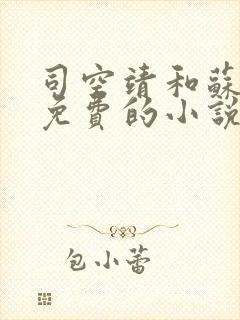 司空靖和蘇
免費的小說
包小蕾